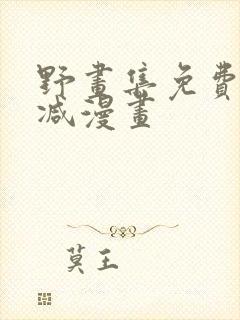 野畫集免費
减漫畫
莫王